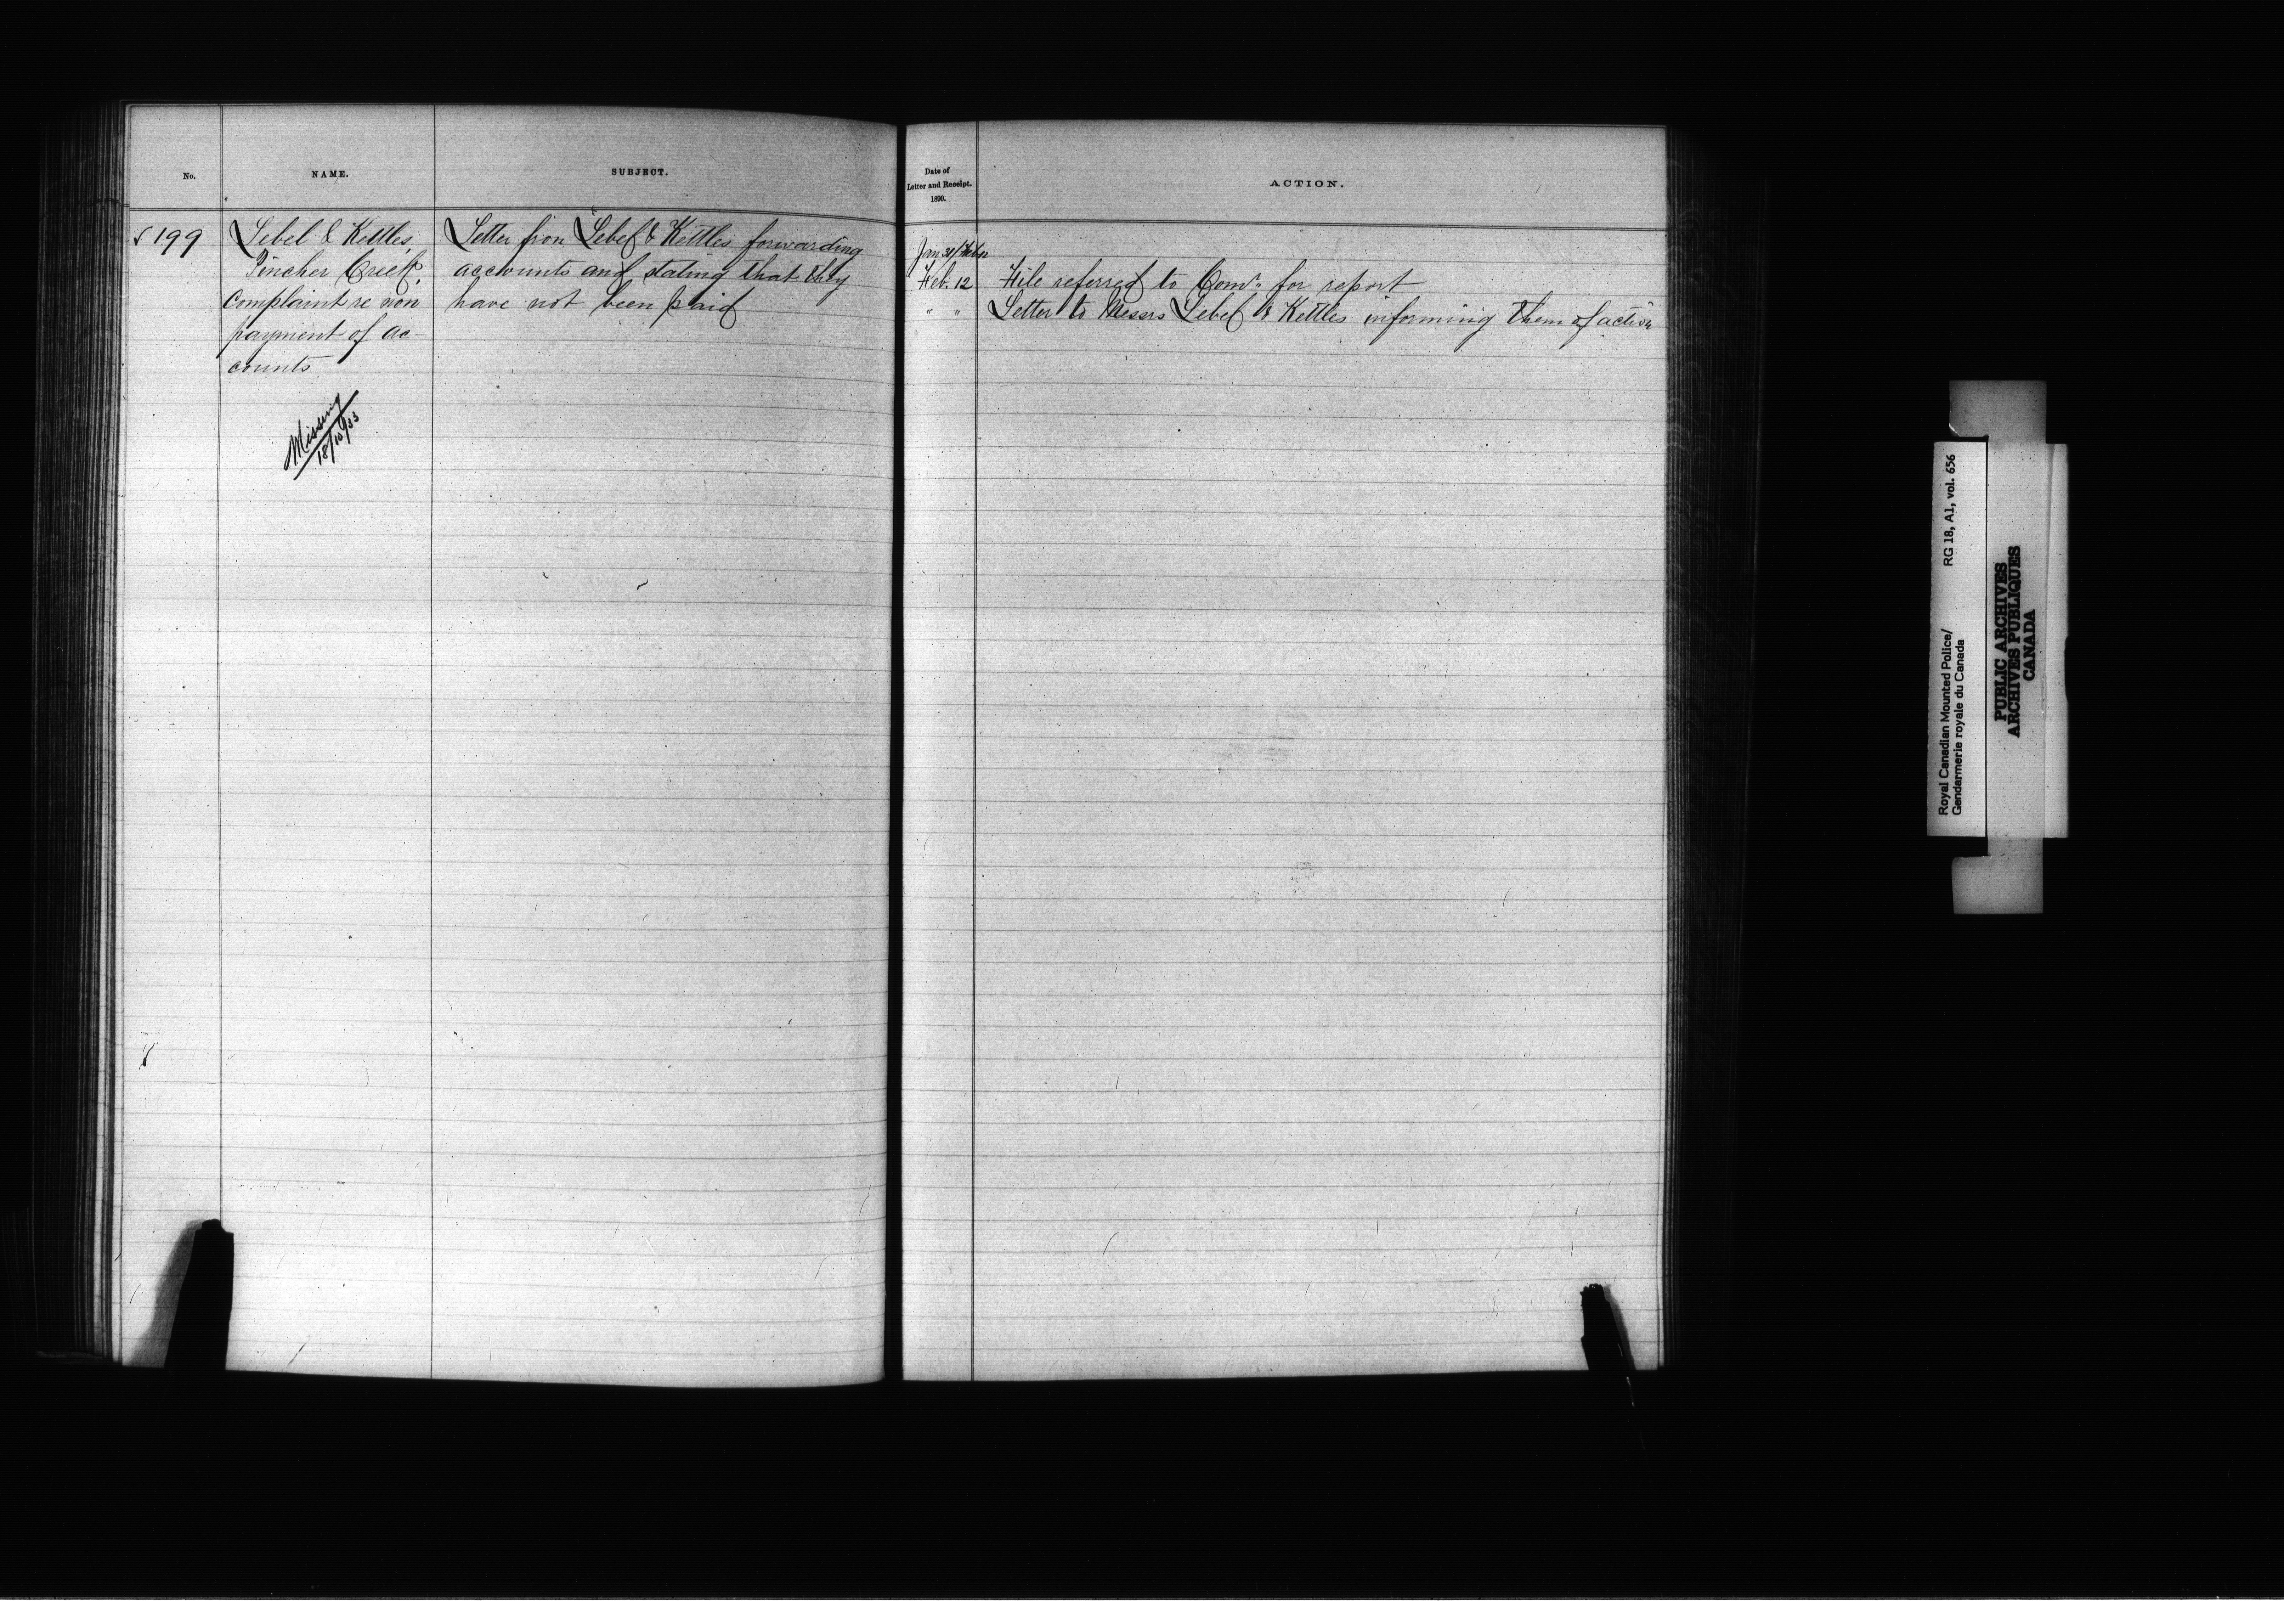 No.
NAME.
SUBJECT.
Date of
Letter and Receipt.
1890.
ACTION.
199
Lebel & Kettles,
Pincher Creek,
Complaint re non
payment of ac-
counts
Missing
18/10/33
Letter from Lebel & Kettles forwarding
accounts and stating that they
have not been paid
Jan 31/Feb
Feb. 12 File referred to Comr. for report
" " Letter to Messrs Lebel & Kettles informing them of action
Royal Canadian Mounted Police/ RG 18, A1, vol. 656
Gendarmerie royale du Canada
PUBLIC ARCHIVES
ARCHIVES PUBLIQUES
CANADA